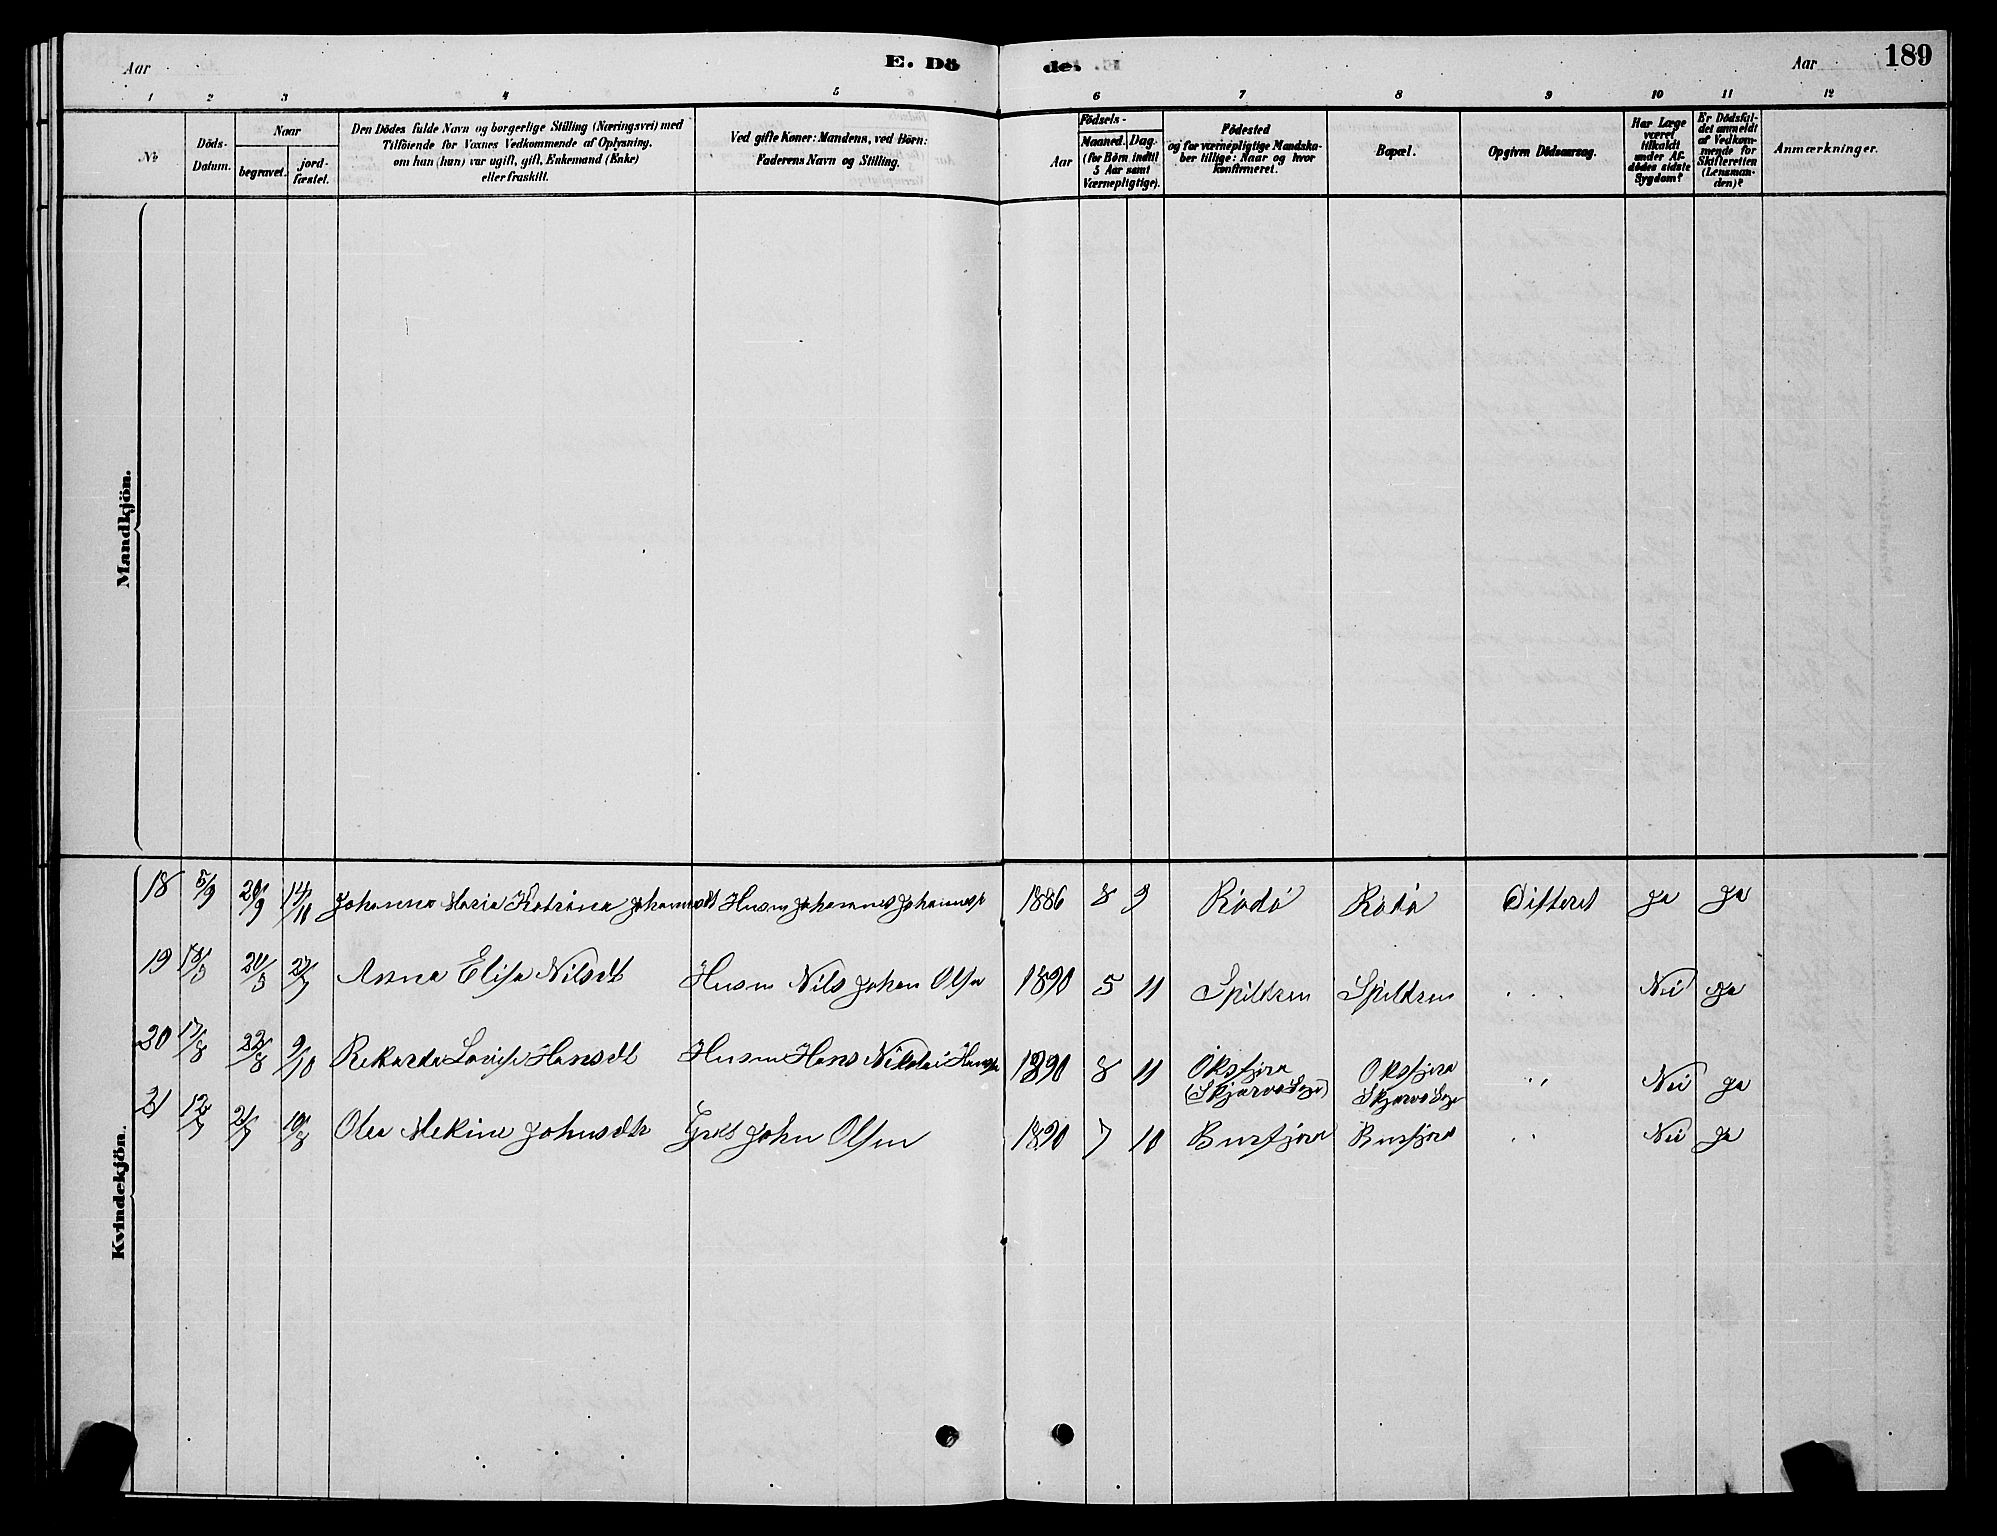 Aar E. Dö de. Aar 189
1 2 3 4 5 6 7 8 9 10 11 12
No
Döds-Datum.
Naar
begravet.
jord-fæstet.
Den Dödes fulde Navn og borgerlige Stilling (Næringsvei) med
Tilföiende for Voxnes Vedkommende af Oplysning,
om han (hun) var ugift, gift, Enkemand (Enke)
eller fraskilt.
Ved gifte Koner: Mandens, ved Börn:
Faderens Navn og Stilling.
Födsels-
Aar
Maaned. Dag.
(for Börn indtil
5 Aar samt
Værnepligtige).
Födested
og for værnepligtige Mandska-
ber tillige: Naar og hvor
konfirmeret.
Bopæl.
Opgiven Dödsaarsag.
Har Læge
været
tilkaldt
under Af-
dödes sidste
Sygdom?
Er Dödsfal-
det anmeldt
af Vedkom-
mende for
Skifteretten
(Lensman-
den)?
Anmærkninger.
Mandkjön.
Kvindekjön.
18 5/9 20/9 Johanna Maria Katrina Husm Johannes 1886 8 9 Rödö Rödö Difteret Ja Ja
19 20/5 Anna Elisa Nilsdt Husm Nils Johan Olsn 1890 5 11 Spildren Spildren Nei Ja
20 17/8 22/8 9/10 Hansdt Husm Hans Nikolai 1890 8 11 Öksfjord Oksfjord " Nei Ja
(Skjærvö Sogn) Skjærvö Sogn
21 12/7 21/7 10/8 Olea Mekine Johnsdtr John Olsen 1890 7 10 Bursfjord Bursfjord " Nei Ja